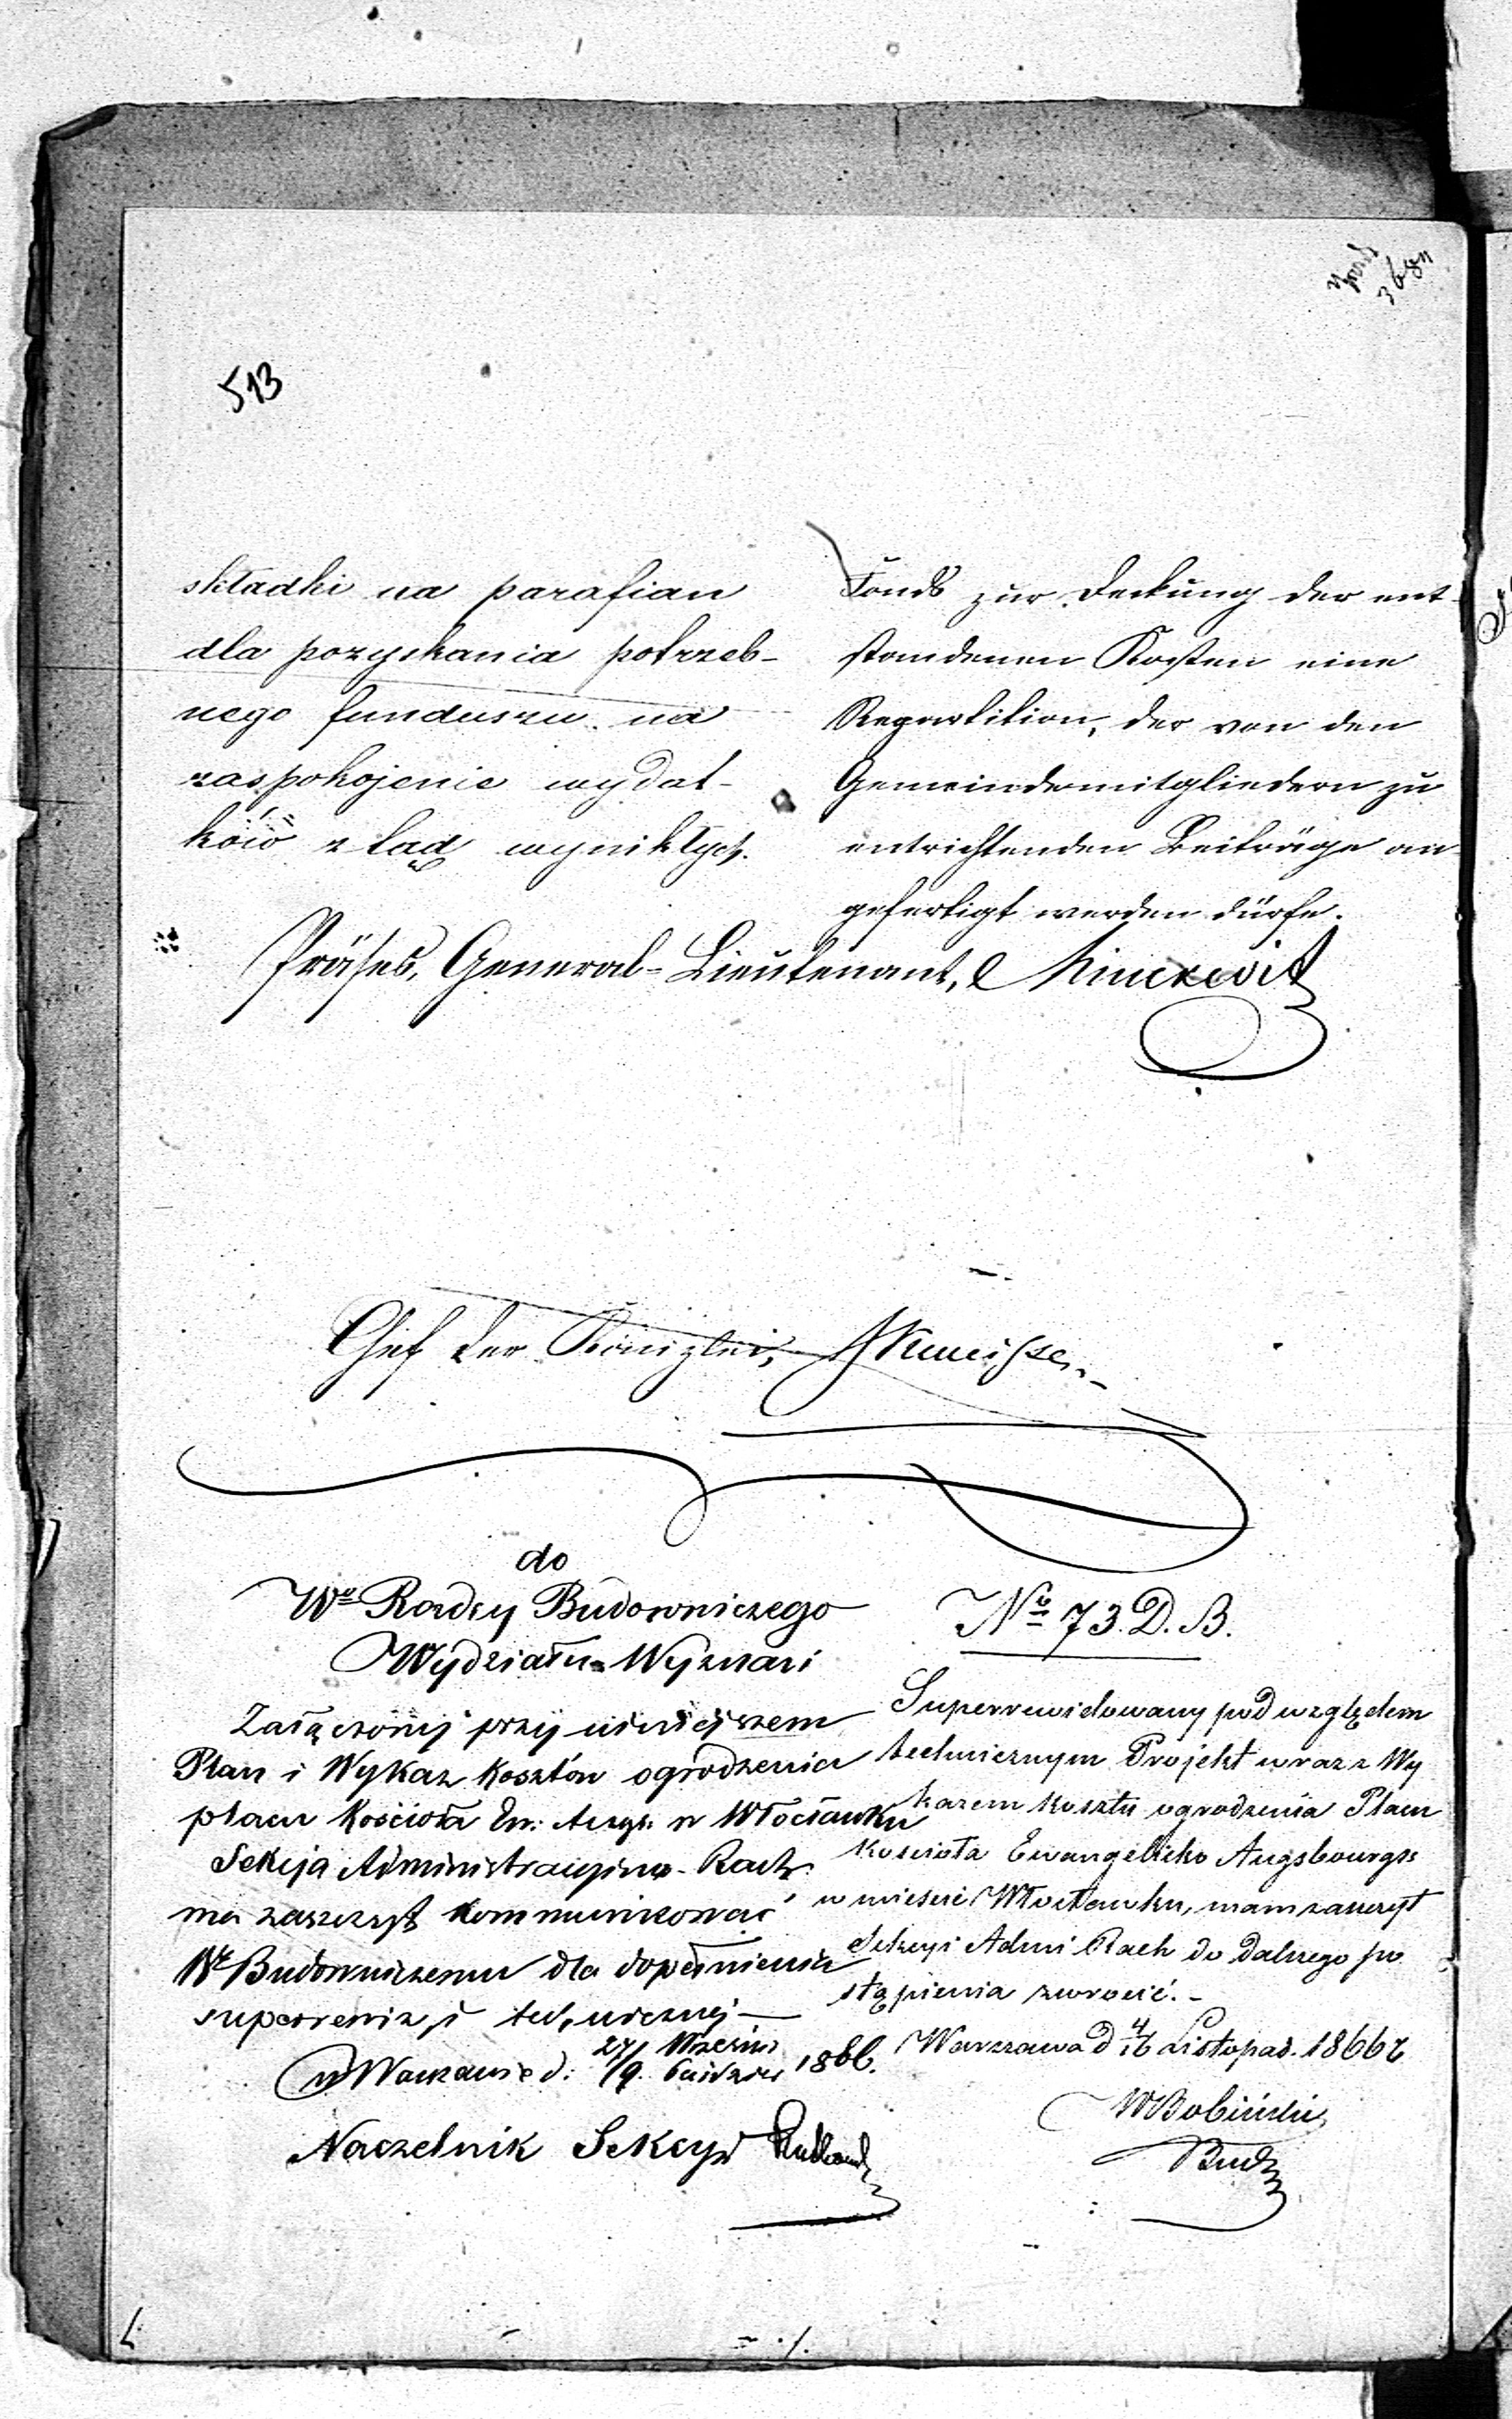 513
składki na parafian
dla pozyskania potrzeb-
nego funduszu na
zaspokojenie wydat-
ków z tąd wynikłych.
Fonds zur Deckung der ent-
standenen Kosten eine
Repartition, der von den
Gemeindemitgliedern zu
entrichtenden Beiträge an-
gefertigt werden dürfe.
Präses, General-Lieutenant, Minckwitz
Chef der Kanzlei,
do
Wo Radcy Budowniczego
Wydziału Wyznań
Załączony przy niniejszem
Plan i Wykaz kosztów ogrodzenia
placu Kościoła Ew: Augs: w Włocławku
Sekcja Administracyjno-Rach.
ma zaszczyt kommunikować
Wu Budowniczemu dla dopełnienia
superrewizyi technicznej —
w Warszawie d: 27/9 Wrześ. Paździer 1866.
Naczelnik Sekcyi
No 73. D. B.
Superrewidowany pod względem
technicznym Projekt wraz z Wy
kazem kosztu ogrodzenia Placu
Kościoła Ewangelicko Augsbourgs:
w mieście Włocławku, mam zaszczyt
Sekcyi Admi Rach do dalszego po
stąpienia zwrócić. -
Warszawa d 4/16 Listopad. 1866 r
WBobiński
Bud